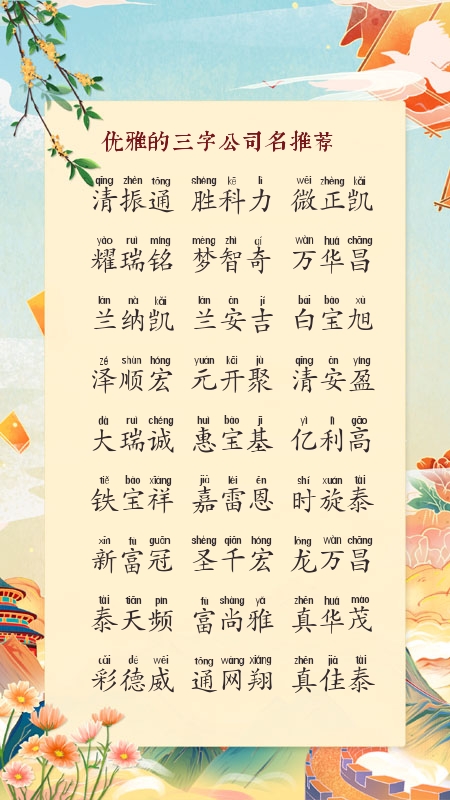 优雅的三字公司名推荐
qīng zhèn tōng shèng kē lì wēi zhèng kǎi
清振通 胜科力 微正凯
yào ruì míng mèng zhì qí wàn huá chāng
耀瑞铭 梦智奇 万华昌
lán nà kǎi lán ān jí bái bǎo xù
兰纳凯 兰安吉 白宝旭
zé shùn hóng yuán kāi jù qīng ān yíng
泽顺宏 元开聚 清安盈
dà ruì chéng huì bǎo jī yì lì gāo
大瑞诚 惠宝基 亿利高
tiě bǎo xiáng jiā léi ēn shí xuán tài
铁宝祥 嘉雷恩 时旋泰
xīn fù guān shèng qiān hóng lóng wàn chāng
新富冠 圣千宏 龙万昌
tài tiān pín fù shàng yǎ zhēn huá mào
泰天频 富尚雅 真华茂
cǎi dé wēi tōng wǎng xiáng zhēn jiā tài
彩德威 通网翔 真佳泰